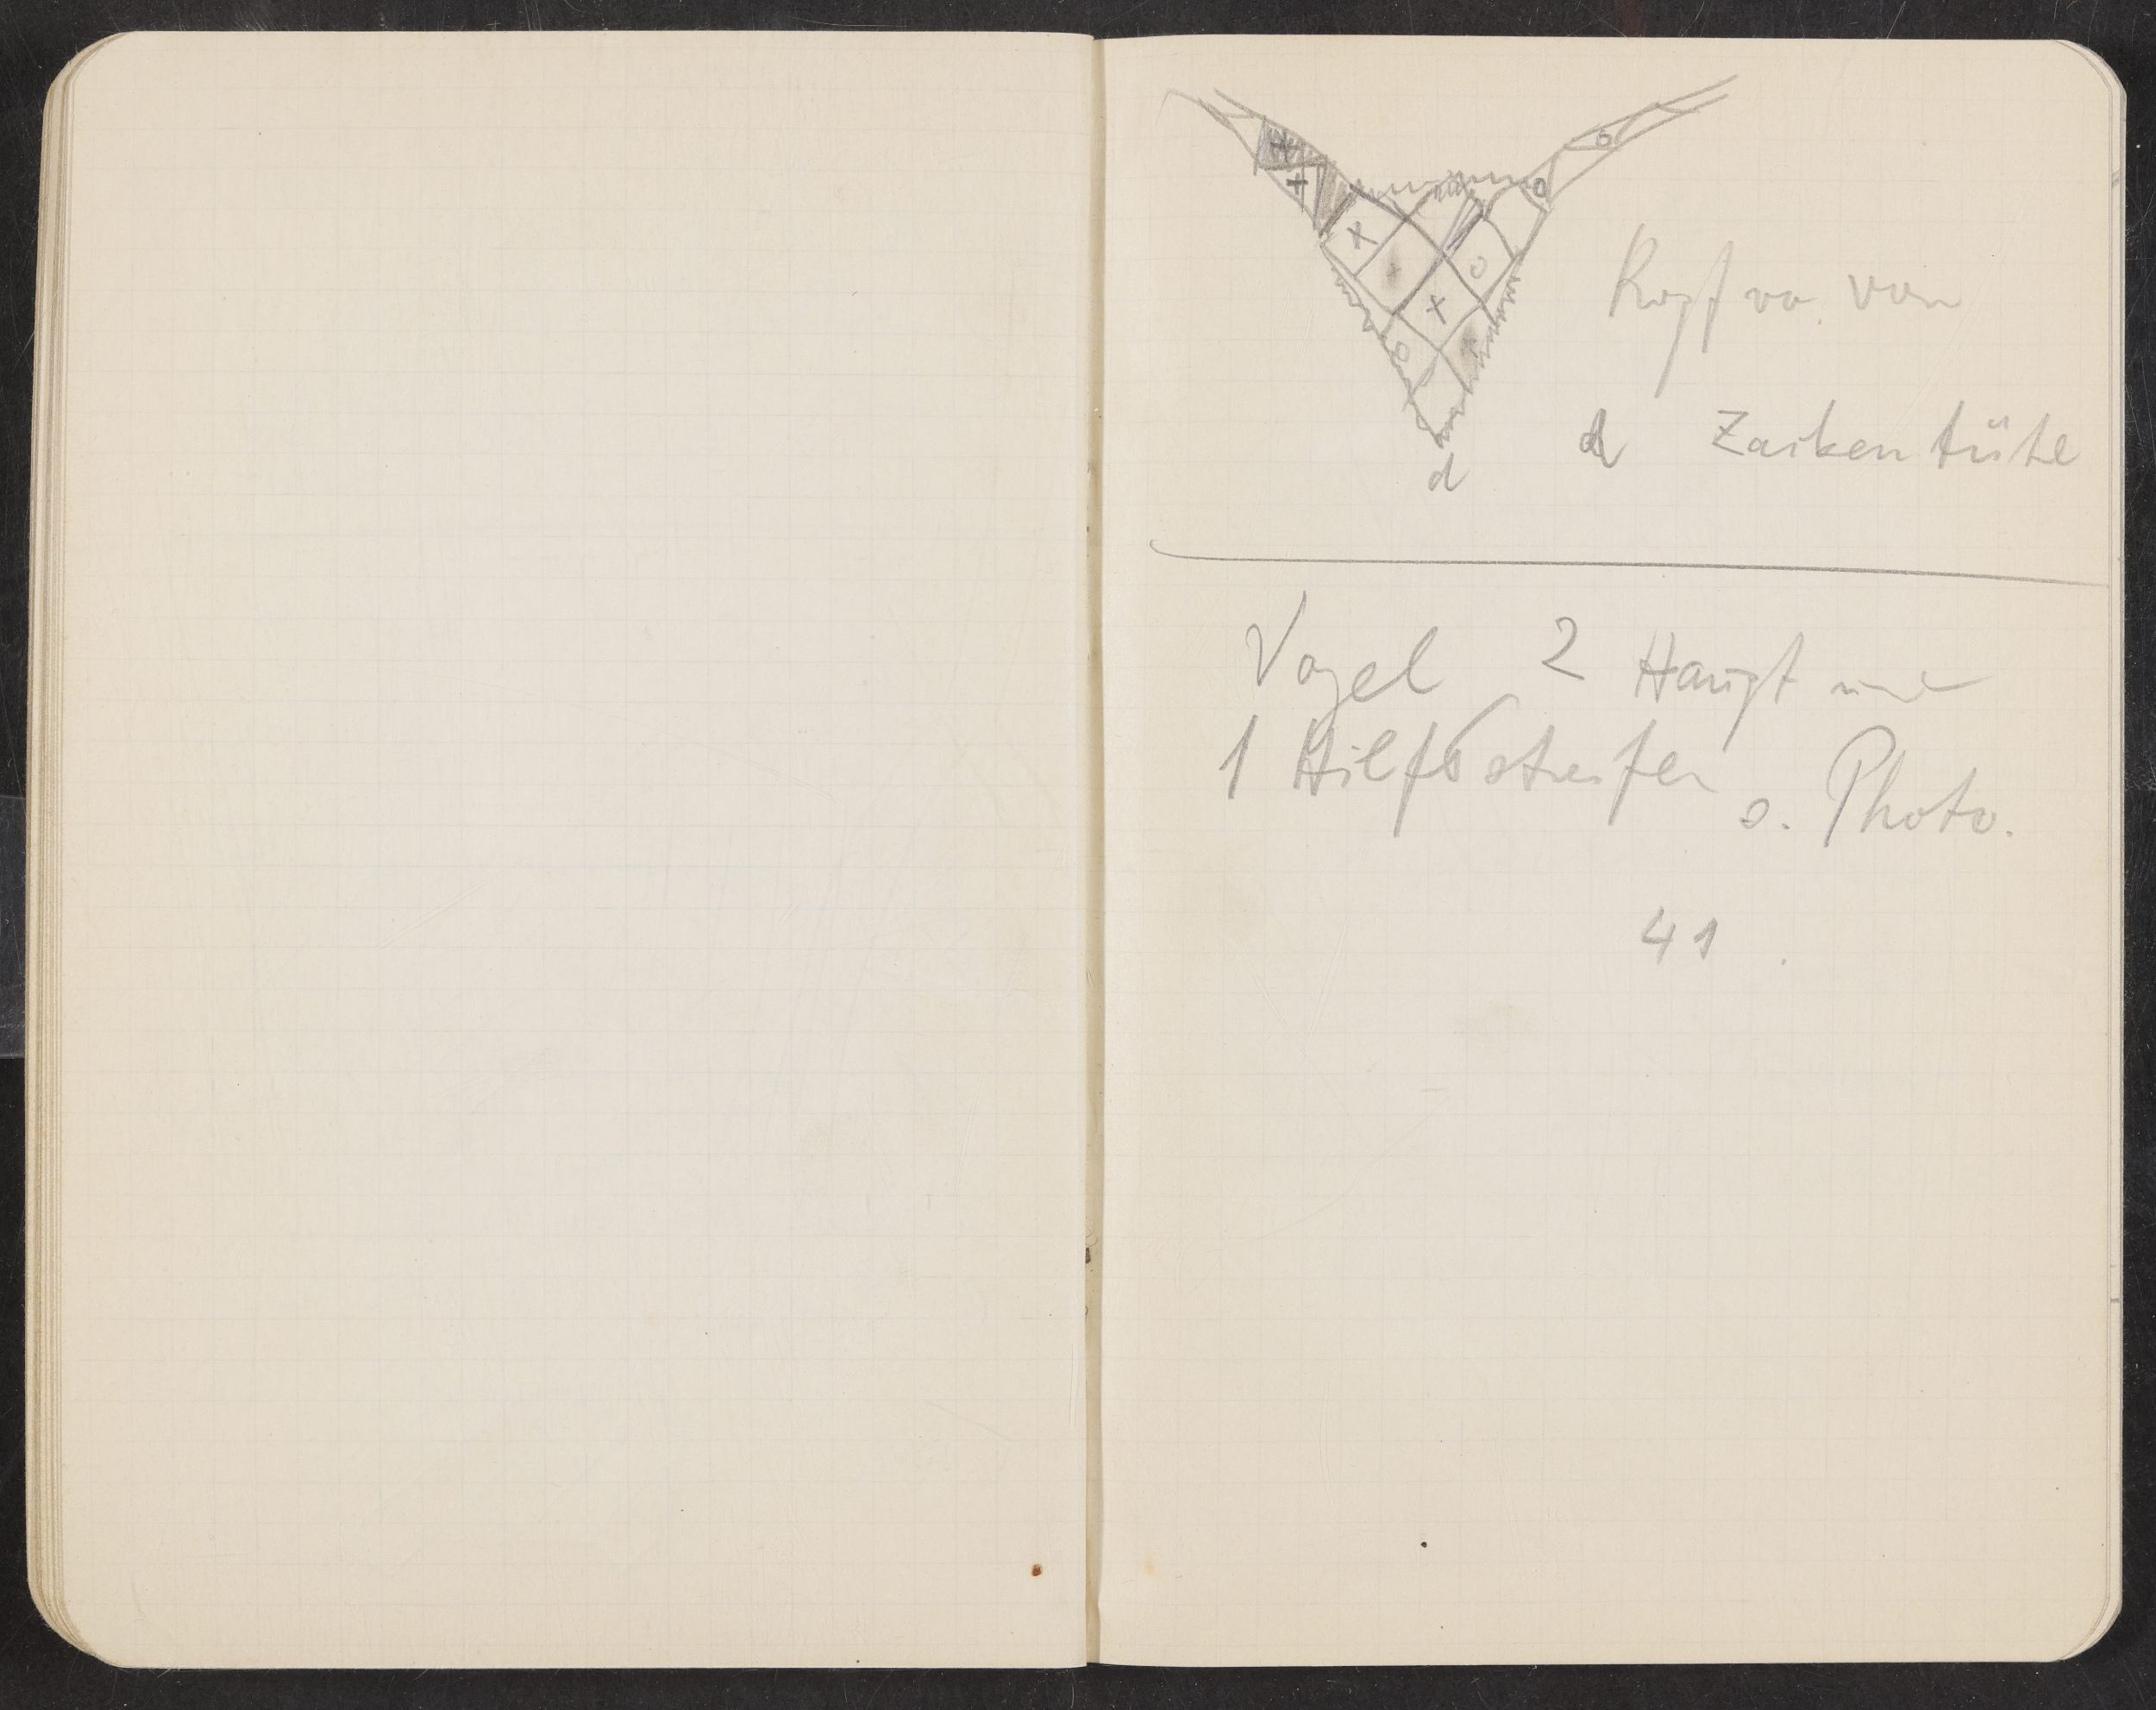 d
Kopf vo von
d Zackentüte
Vogel 2 Haupt und
1 Hilfsstreifen s. Photo.
41.